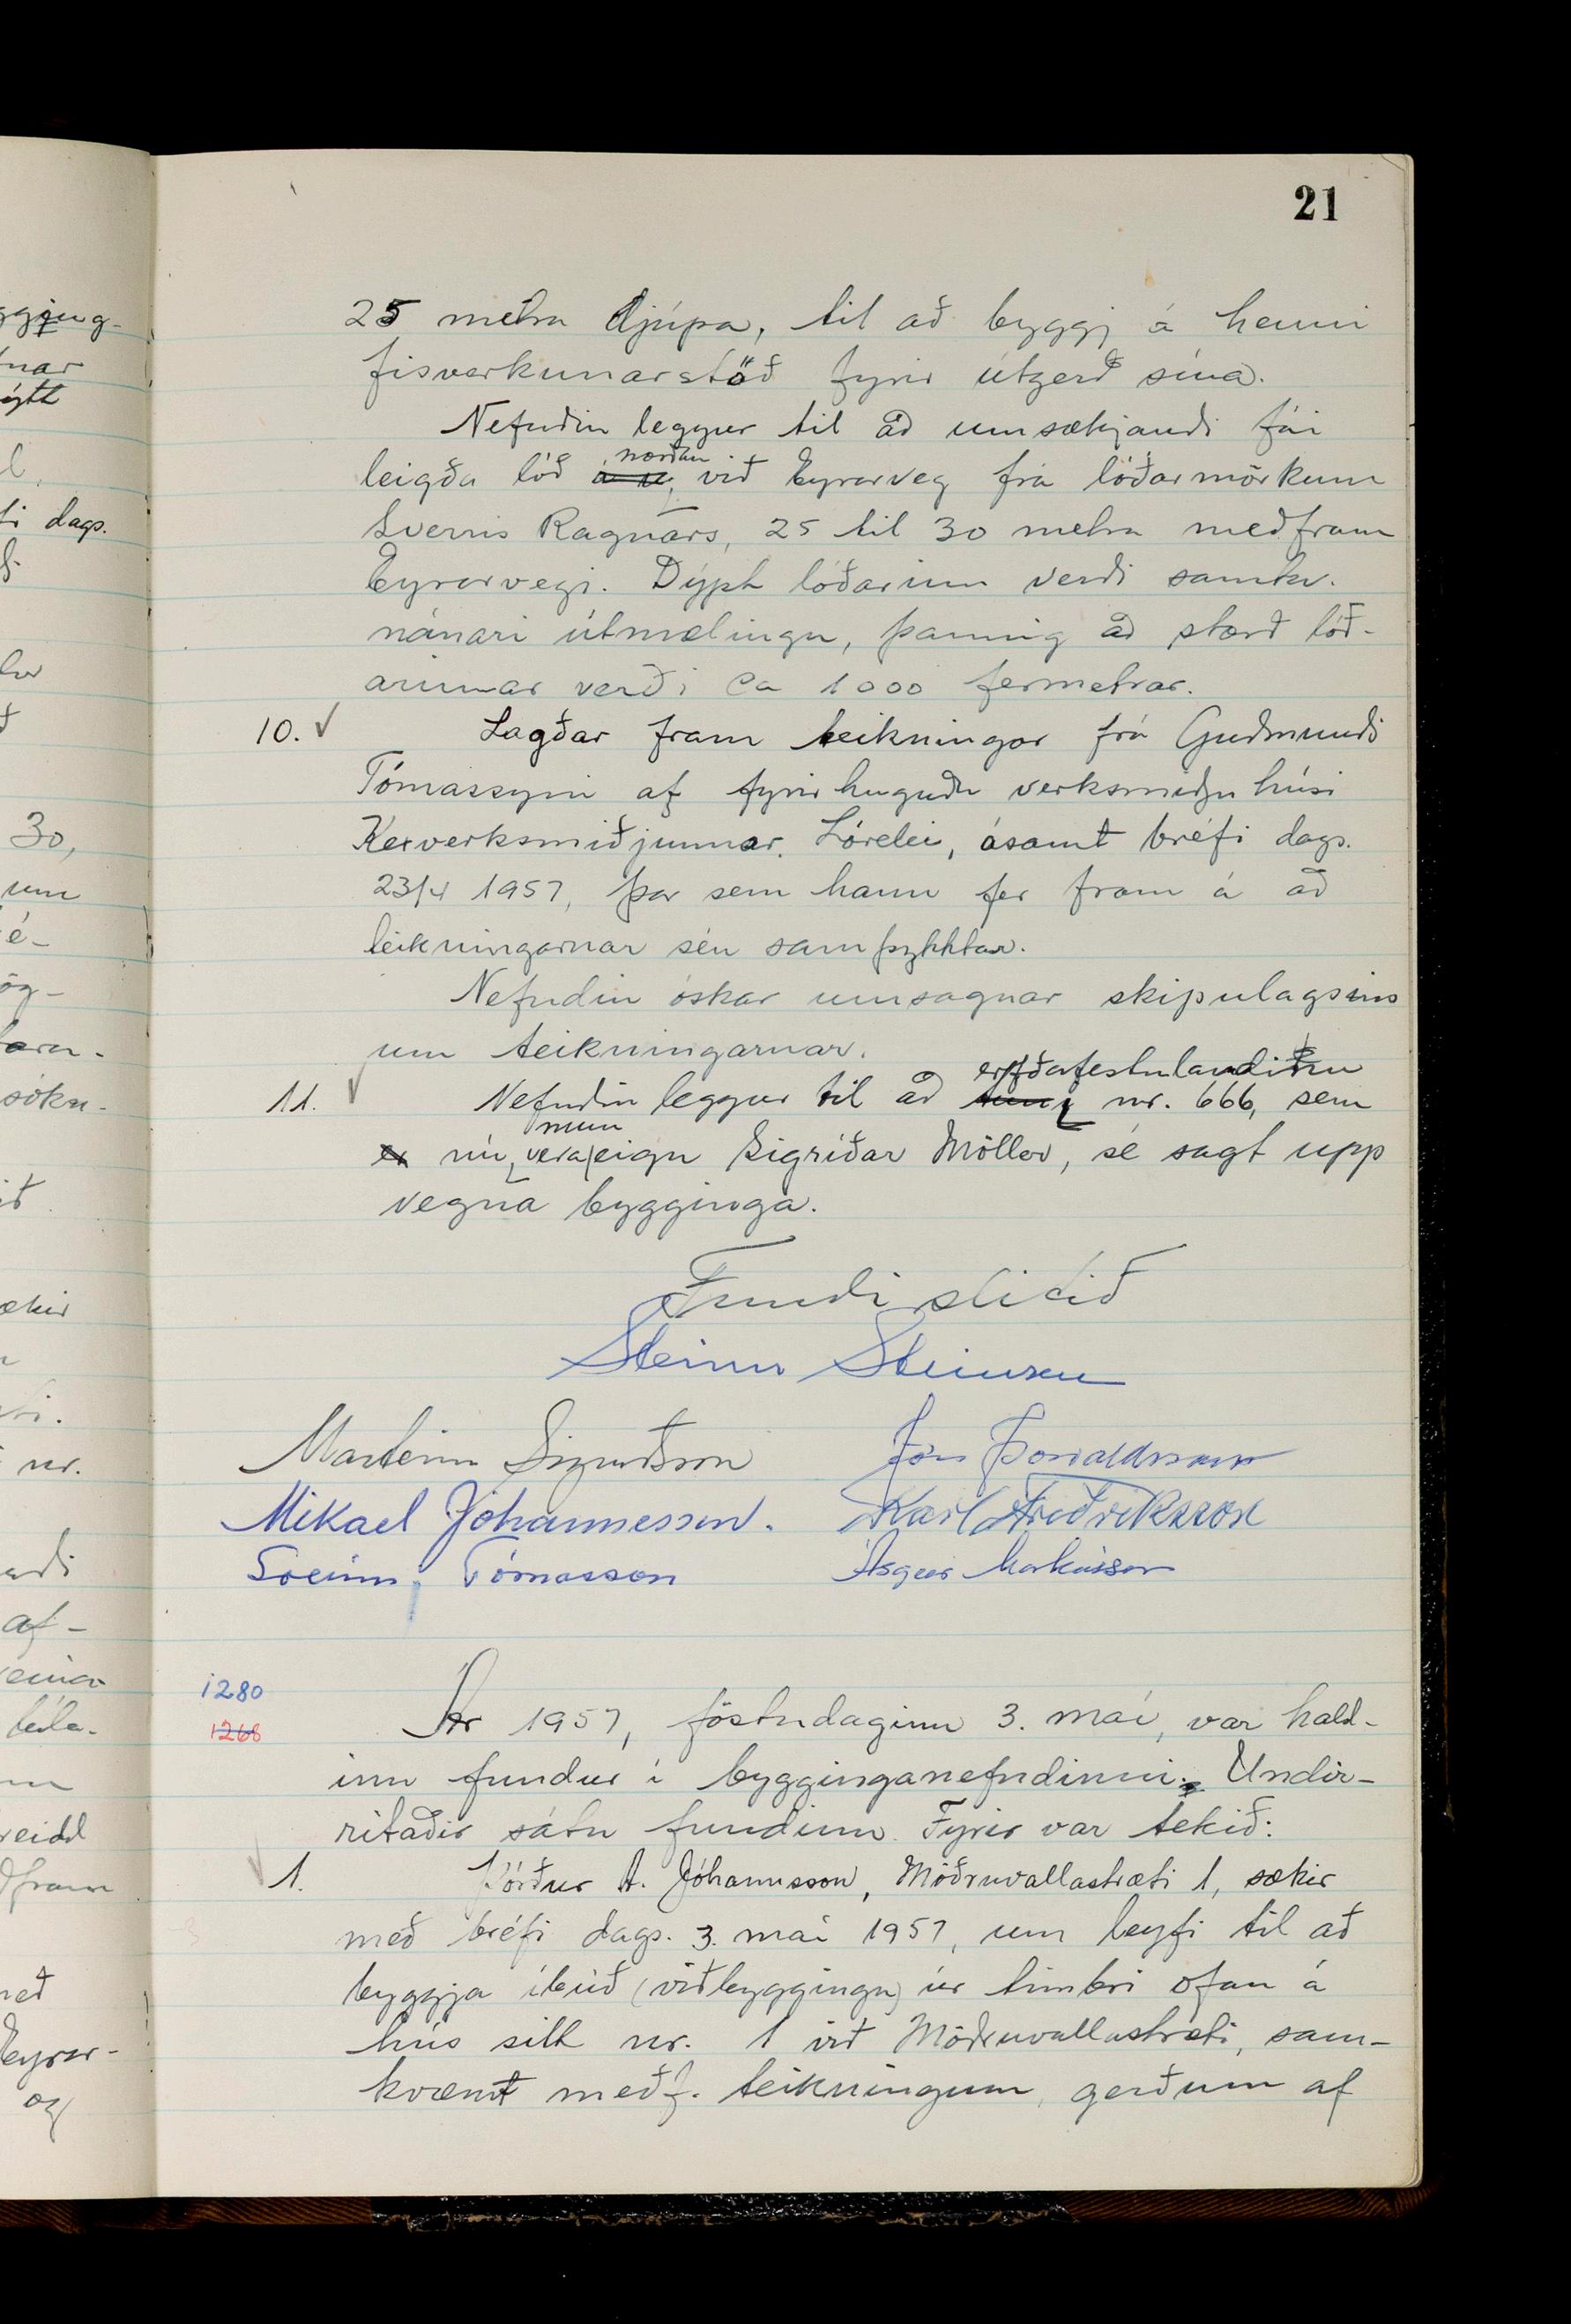 21
25 metra djúpa, til að byggj á henni
fisverkunarstöð fyrir útgerð sína.
Nefndin leggur til að umsækjandi fái
norðan
leigða lóð við Eyrarveg frá lóðarmörkum
Sverris Ragnars, 25 til 30 metra meðfram
Eyrarvegi. Dýpt lóðarinn verði samkv.
nánari útmælingu, þannig að stærð lóð-
arinnar verði ca 1000 fermetrar.
10. Lagðar fram teikningar frá Guðmundi
Tómassyni af fyrirhuguðu verksmiðju húsi
Kexverksmiðjunnar Lórelei, ásamt bréfi dags.
23/4 1957, þar sem hann fer fram á að
teikningarnar séu samþykktar.
Nefndin óskar umsagnar skipulagsins
um teikningarnar.
erfðafestulandinu
11. Nefndin leggur til að nr. 666, sem
mun
er nú vera eign Sigríðar Möller, sé sagt upp
vegna bygginga.
Fundi slitið
Steinn Steinsen
Marteinn Sigurðsson Jón Þorvaldsson
Mikael Jóhannesson. Karl Friðriksson
Sveinn Tómasson Ásgeir Markússon
1280
1268
Ár 1957, föstudaginn 3. maí, var hald-
inn fundur í bygginganefndinni. Undir-
ritaðir sátu fundinn. Fyrir var tekið:
1. Þórður A. Jóhannsson, Möðruvallastræti 1, sækir
með bréfi dags. 3. maí 1957, um leyfi til að
byggja íbúð (viðbyggingu) úr timbri ofan á
hús sitt nr. 1 við Möðruvallastræti, sam-
kvæmt meðf. teikningum, gerðum af